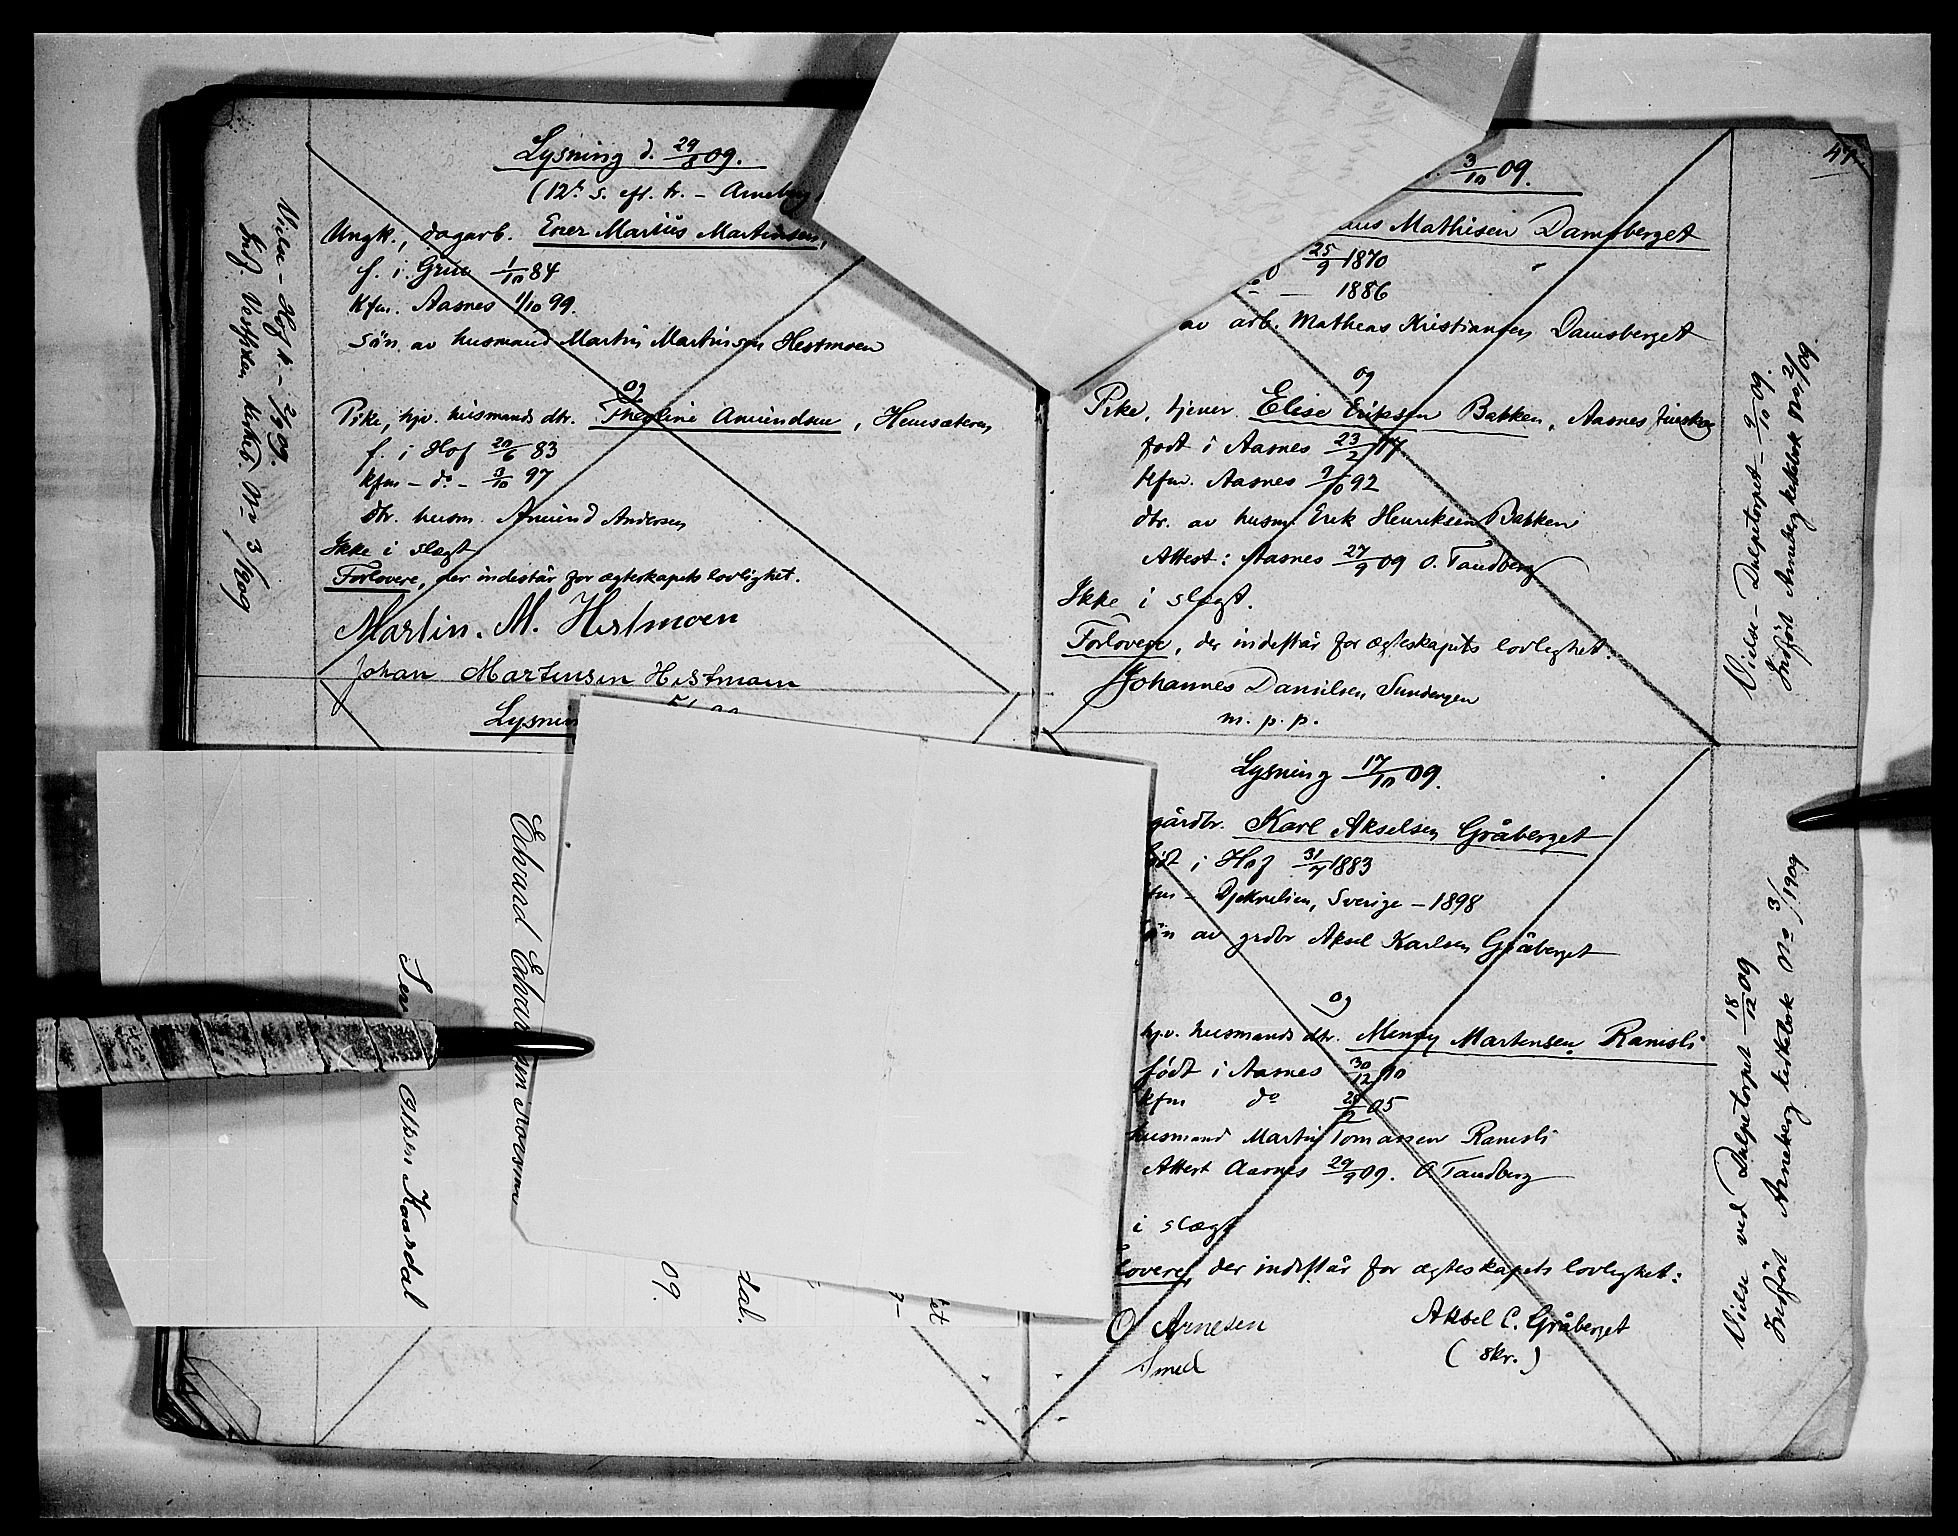 Lysning d. 29/8 09.
(12. s. eft. tr. – Arneberg
Ungk., dagarb. Ener Marius Martinsen,
f. i Grue 1/10 84
Kfm. Aasnes 1/10 99.
søn av husmand Martin Martinsen Hestmoen
og
Pike, hjv. husmands dtr. Theoline Amundsen, Hemsæteren
f. i Hof 20/6 83
kfm – do – 3/10 97
dtr. husm. Amund Andersen
Ikke i slægt
Forlovere, der indestår for ægteskapets lovlighet.
Martin. M. Hestmoen
Johan Martinsen Hestmoen
Vielse – Hof k. – 2/10 09.
Indf. Vestsiden Kirkeb. No 3/1909
Edvard
Olsen Kaasdal
09.
dal.
47.
3/10 09.
Mathisen Damsberget
25/9 1870
1886
av arb. Matheas Kristiansen Damsberget
og
Pike, tjener Elise Eriksen Bakken, Aasnes Finskog
født i Aasnes 23/2 77
Kfm. Aasnes 9/10 92
dtr. av husm. Erik Henriksen Bakken
Attest: Aasnes 27/9 09 O. Tandberg
Ikke i slægt.
Forlovere, der indestår for ægteskapets lovlighet:
Johannes Danielsen
m. p. p.
Vielse – Dulpetorpet – 9/10 09.
Indført Arneberg kirkebok No 2/09.
Lysning 17/10 09.
gårdbr. Karl Akselsen Gråberget
i Hof 31/7 1883
– Sverige – 1898
av grdbr Aksel Karlsen Gråberget
og
hjv. husmands dtr. Menny Martensen, Ramsli
født i Aasnes 30/12 90
kfm do 05
husmand Martin Tomassen Ramsli
Attest Aasnes 29/9 09. O Tandberg
i slægt
lovere, der indestår for ægteskapets lovlighet:
O Arnesen
Aksel C. Gråberget
Smed
(skr.)
Vielse ved Dulpetorpet 18/12 09
Indført Arneberg kirkebok No 3/1909